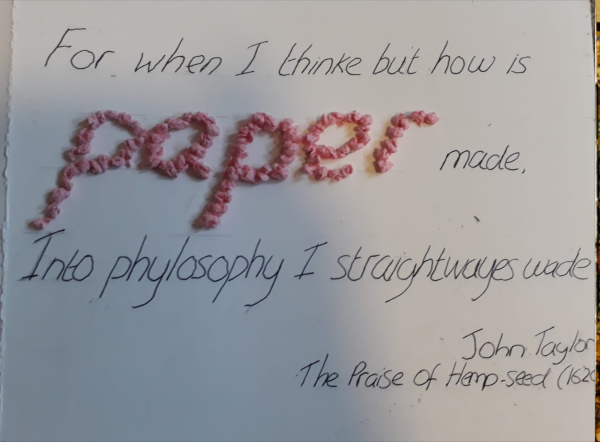 For when I thinke but how is
paper made,
Into phylosophy I straightwayes wade
John Taylor
The Praise of Hemp-seed (162